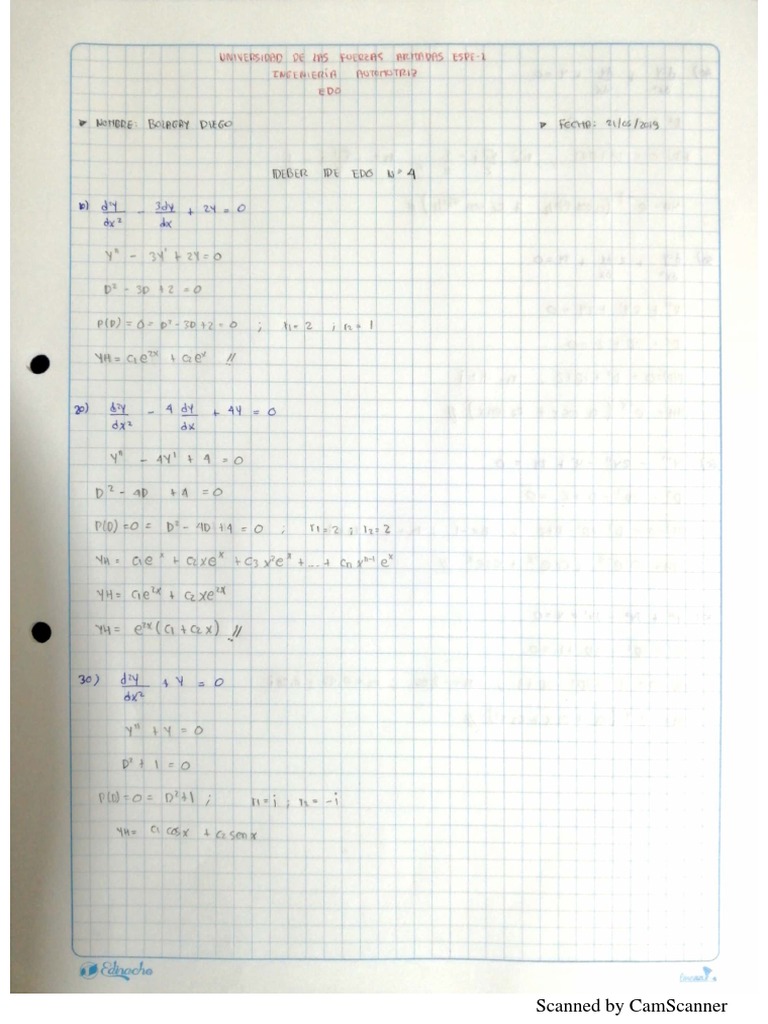 UNIVERSIDAD DE LAS FUERZAS ARMADAS ESPE-L
INGENIERÍA AUTOMOTRIZ
EDO
NOMBRE: BOLAGAY DIEGO
FECHA: 21/05/2019
DEBER DE EDO N° 4
10) d²y/dx² - 3dy/dx + 2y = 0
y'' - 3y' + 2y = 0
D² - 3D + 2 = 0
P(D) = 0 = D² - 3D + 2 = 0 ; r1 = 2 ; r2 = 1
YH = c1e^2x + c2e^x //
20) d²y/dx² - 4 dy/dx + 4y = 0
y'' - 4y' + 4 = 0
D² - 4D + 4 = 0
P(D) = 0 = D² - 4D + 4 = 0 ; r1 = 2 ; r2 = 2
YH = c1e^x + c2xe^x + c3x²e^x + ... + cn x^n-1 e^x
YH = c1e^2x + c2xe^2x
YH = e^2x (c1 + c2x) //
30) d²y/dx² + y = 0
y'' + y = 0
D² + 1 = 0
P(D) = 0 = D² + 1 ; r1 = i ; r2 = -i
YH = c1 cosx + c2 senx
Edinacho
Scanned by CamScanner